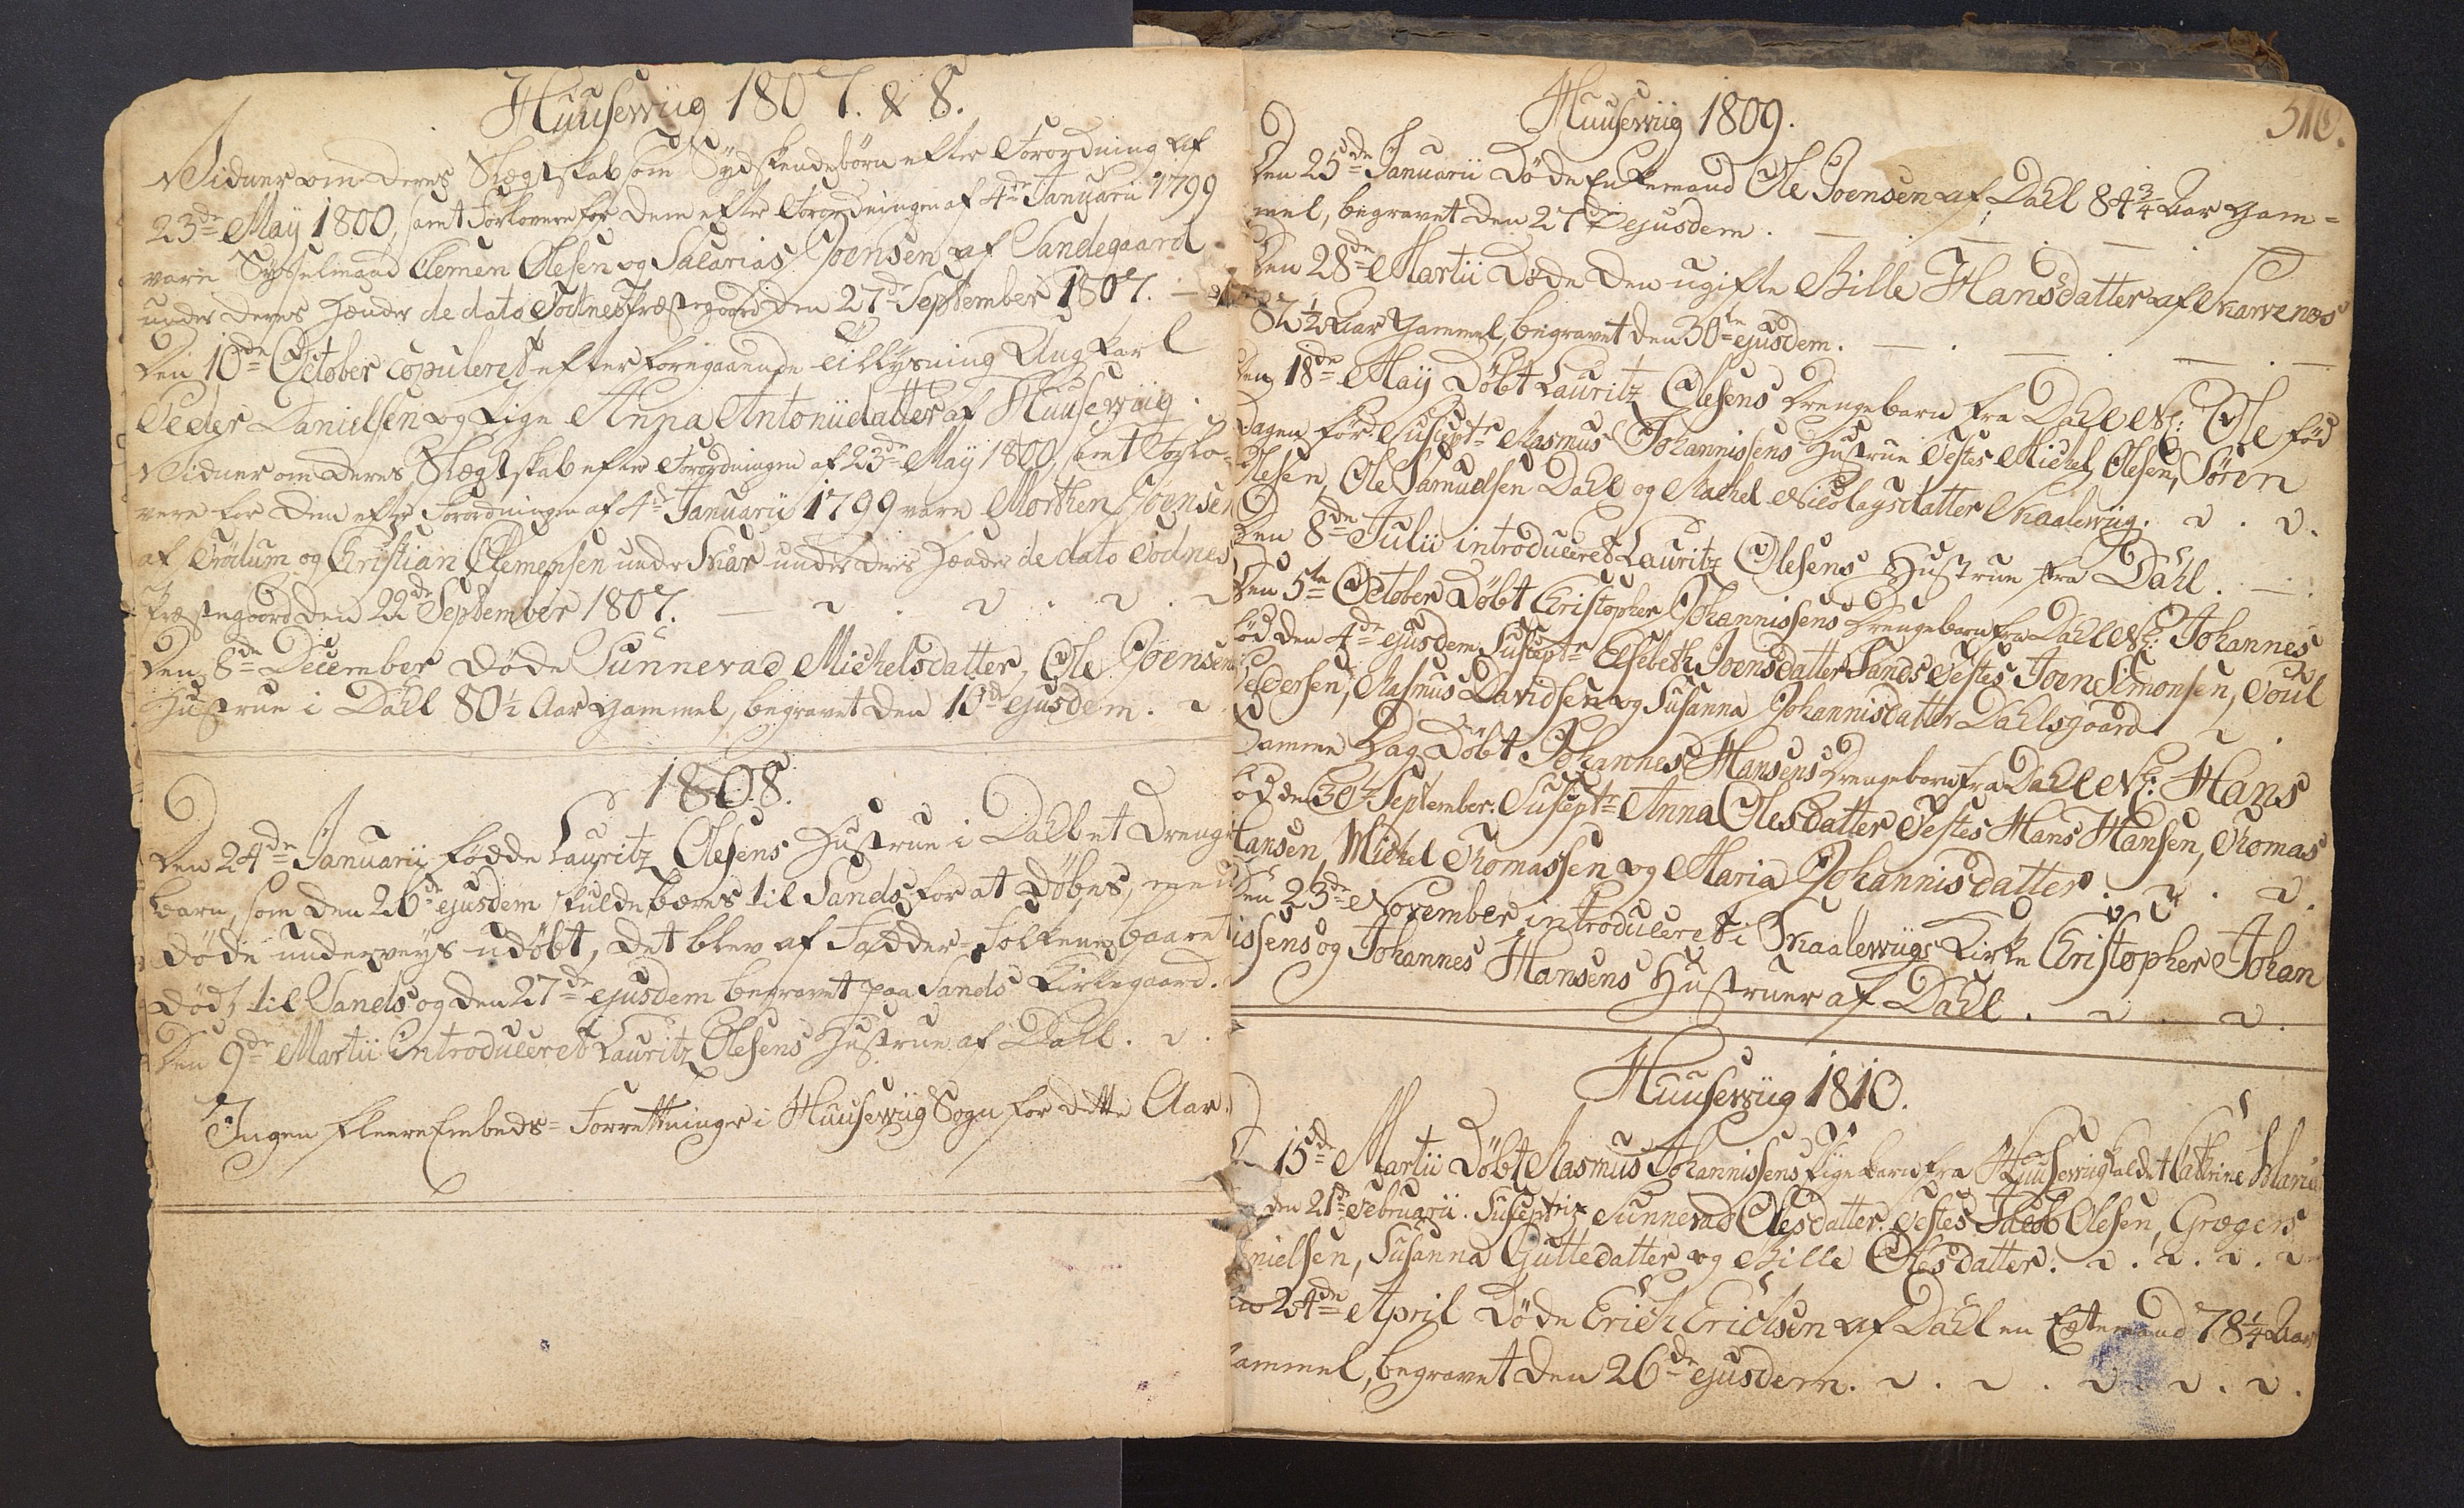 Huusewiig 1807. & 8.
Vidner om deres Slægtskab som Sydskendebörn efter Forordning af
23de Maÿ 1800, samt Forlovere for dem efter Forordningen af 4de Januarii 1799
vare Sysselmand Clemen Olesen og Sacarias Joensen af Sandegaard
under deres Hænder de dato Todnes Præstegaard den 27de September 1807.
Den 10de October copuleret efter foregaaende Tillysning Ung Karl
Peder Danielsen og Pige Anna Antoniidatter af Huusewiig.
Vidner om deres Slægtskab efter Forordningen af 23de Maÿ 1800, samt Forlo-
vere for dem efter Forordningen af 4de Januarii 1799 vare Morthen Joensen
af Trödum og Christian Clemensen under Skar under deres Hænder de dato Todnes
Præstegaard den 22de September 1807.
Den 8de December døde Sunnevad Michelsdatter, Ole Joensens
Hustrue i Dahl 80½ Aar gammel, begravet den 10de ejusdem.
1808.
Den 24de Januarii fødde Lauritz Olesens Hustrue i Dahl et Drenge
barn, som den 26de ejusdem skulde bæres til Sands for at døbes, men
døde underveys udøbt, det blev af Fadder-Folkene baaret
dødt til Sands og den 27de ejusdem begravet paa Sands Kirkegaard.
Den 9de Martii introduceret Lauritz Olesens Hustrue af Dahl.
Ingen fleere Embeds-Forrettninger i Huusewiig Sogn for dette Aar.
310.
Huusewiig 1809.
Den 25de Januarii døde Enkemand Ole Joensen af Dahl 84¾ Aar gam-
mel, begravet den 27de ejusdem.
Den 28de Martii døde den ugifte Bille Hansdatter af Skarvenæs
82½ Aar gammel, begravet den 30te ejusdem.
Den 18de Maÿ døbt Lauritz Olesens Drengebarn fra Dahl N: Ole fød
dagen før. Suscept: Rasmus Johannissens Hustrue Testes Michel Olesen, Søren
Olesen, Ole Samuelsen Dahl og Rachel Nicolaysdatter Skaalewiig.
Den 8de Julii introduceret Lauritz Olesens Hustrue fra Dahl.
Den 5te October døbt Christopher Johannissens Drengebarn fra Dahl N: Johannes
fød den 4de ejusdem. Suscept: Elsebeth Joensdatter Sands Testes Joen Simonsen, Poul
Pedersen, Rasmus Davidsen og Susanna Johannisdatter Dahlsgaard
Samme Dag døbt Johannes Hansens Drengebarn fra Dahl N: Hans
fød den 30te September. Suscept: Anna Olesdatter Testes Hans Hansen, Thomas
Hansen, Michel Thomassen og Maria Johannisdatter.
Den 23de November introduceret i Skaalewiigs Kirke Christopher Johan
issens og Johannes Hansens Hustruer af Dahl.
Huusewiig 1810.
15de Martii døbt Rasmus Johannissens Pigebarn fra Huusewiig kaldet Cathrine Maria
den 21de Februarii. Susceptrix Sunnevad Olesdatter. Testes Jacob Olesen, Grægers
nielsen, Susanna Guttedatter og Bille Olesdatter.
24de April døde Erich Erichsen af Dahl en Ægtemand 78¼ Aar
gammel, begravet den 26de ejusdem.